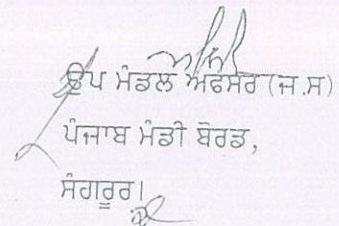 ਉਪ ਮੰਡਲ ਅਫਸਰ (ਜ.ਸ)
ਪੰਜਾਬ ਮੰਡੀ ਬੋਰਡ,
ਸੰਗਰੂਰ।